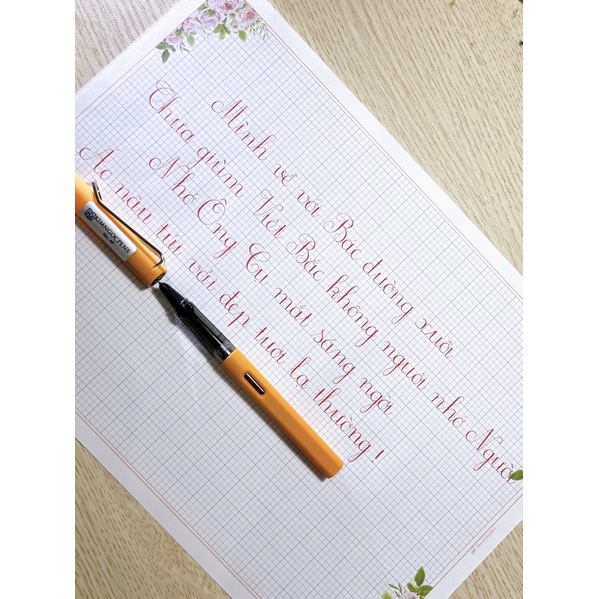 Mình về với Bác đường xuôi
Thưa giùm Việt Bắc không nguôi nhớ Người
Nhớ Ông Cụ mắt sáng ngời
Áo nâu túi vải đẹp tươi lạ thường!
KIMNGOCPENS